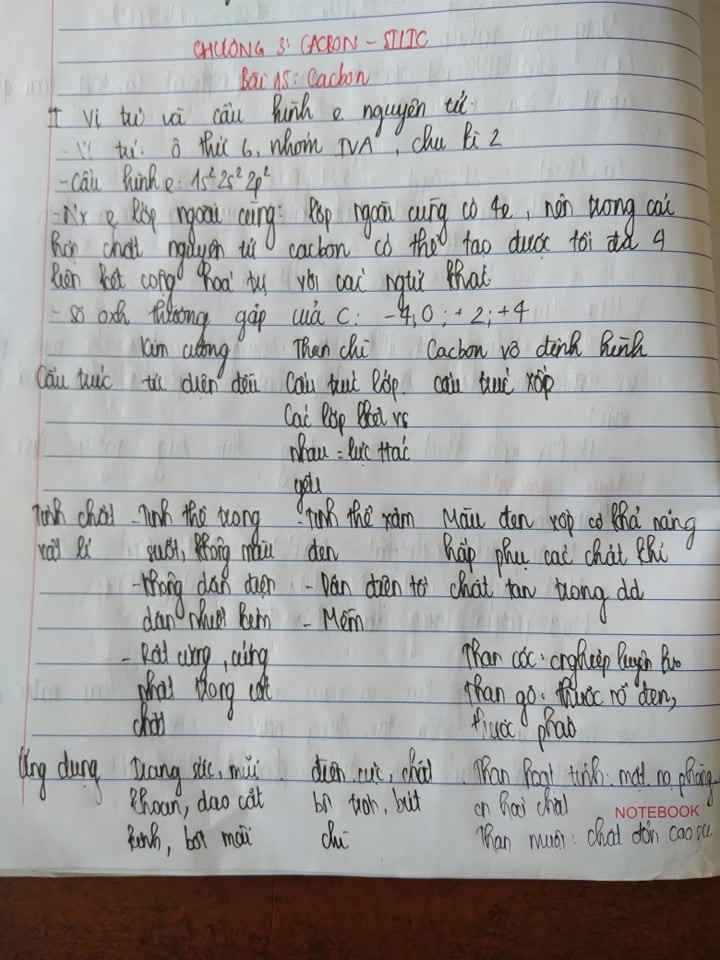 CHƯƠNG 3: CACBON - SILIC
Bài 15: Cacbon
I Vị trí và cấu hình e nguyên tử.
- Vị trí: ô thứ 6, nhóm IVA, chu kì 2
- Cấu hình e: 1s² 2s² 2p²
- Nx e lớp ngoài cùng: lớp ngoài cùng có 4e, nên trong các
hợp chất nguyên tử cacbon có thể tạo được tối đa 4
liên kết cộng hoá trị với các ngtử khác.
- số oxh thường gặp của C: -4; 0; +2; +4
Kim cương Than chì Cacbon vô định hình
Cấu trúc tứ diện đều Cấu trúc lớp. cấu trúc xốp
Các lớp lkết vs
nhau = lực ttác
yếu
Tính chất - Tinh thể trong - Tinh thể xám Màu đen xốp có khả năng
vật lí suốt, không màu đen hấp phụ các chất khí
- không dẫn điện - Dẫn điện tốt chất tan trong dd
dẫn nhiệt kém - Mềm
- Rất cứng, cứng Than cốc: cnghiệp luyện kim
nhất trong các Than gỗ: thuốc nổ đen,
chất thuốc pháo
Ứng dụng Trang sức, mũi điện cực, chất Than hoạt tính: mặt nạ phòng
khoan, dao cắt bôi trơn, bút cn hoá chất
kính, bột mài chì Than muội: chất độn cao su.
NOTEBOOK